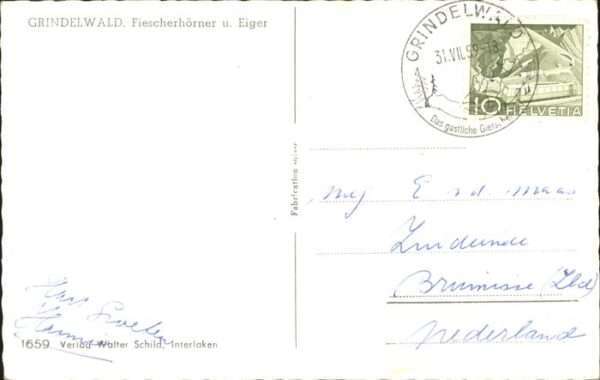 GRINDELWALD, Fiescherhörner u. Eiger
GRINDELWALD
31.VII.59
Das gastliche
10 HELVETIA
Fabrication suisse
mej E v d maas
Zuideinde
Bruinisse (Zld)
Nederland
Hannie
1659 Verlag Walter Schild, Interlaken